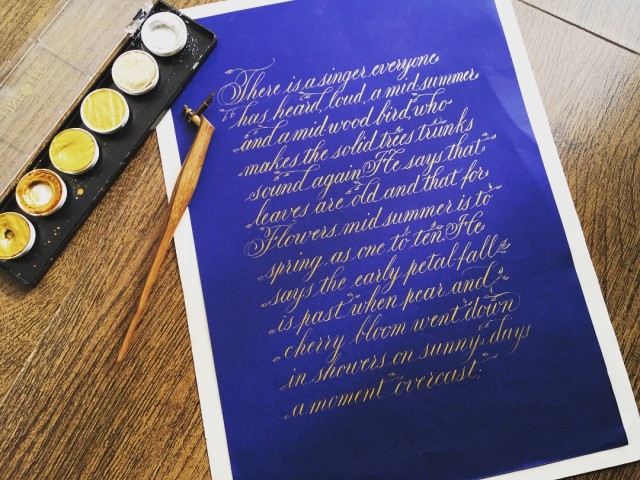 There is a singer everyone
has heard, loud, a mid summer
and a mid wood bird, who
makes the solid trees trunks
sound again He says that
leaves are old and that for
Flowers, mid summer is to
spring as one to ten. He
says the early petal-fall
is past when pear and
cherry bloom went down
in showers on sunny days
a moment overcast;